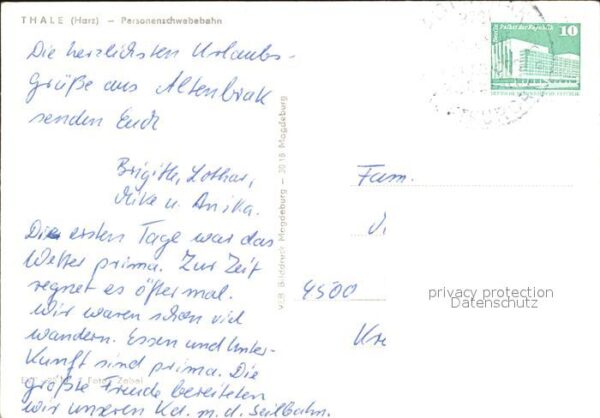 THALE (Harz) — Personenschwebebahn
Die herzlichsten Urlaubs-
grüße aus Altenbrak
senden Euch
Brigitte, Lothar,
u. Anika.
Die ersten Tage war das
Wetter prima. Zur Zeit
regnet es öfter mal.
Wir waren schon viel
wandern. Essen und Unter-
kunft sind prima. Die
größte Freude bereiteten
wir unseren Kd. m. d. Seilbahn.
Foto: Zobel
VEB Bilddruck Magdeburg — 3018 Magdeburg
10
Palast der Republik
Fam.
4500
privacy protection
Datenschutz